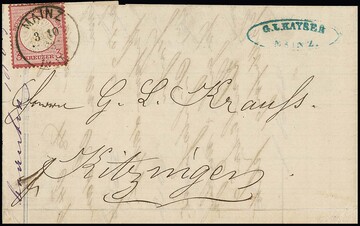 MAINZ
3 10
KREUZER
G. L. KAYSER
MAINZ.
Herrn G. L. Krauss.
Kitzingen